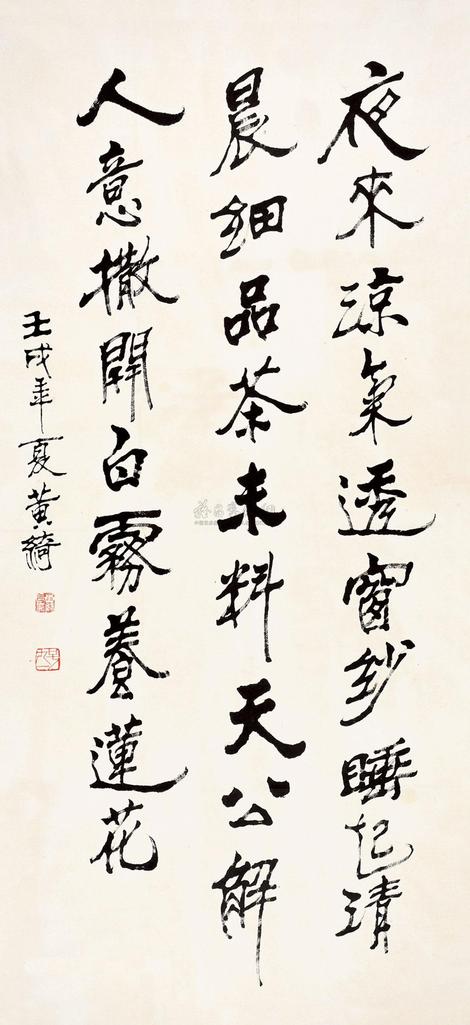 夜來涼氣透窗紗睡起清
晨細品茶未料天公解
人意撒開白霧養蓮花
壬戌年夏黃綺